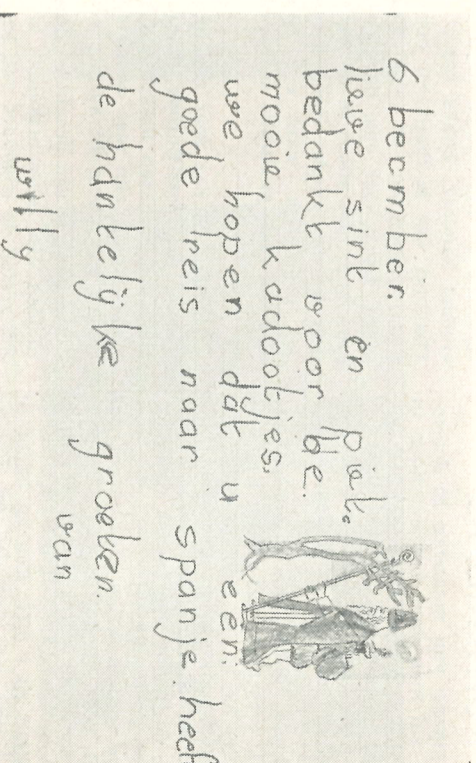 6 becmber.
lieve sint en piet.
bedankt voor be.
mooie kadootjes.
we hopen dat u een.
goede reis naar spanje. heef
de hantelijke groeten.
van
willy